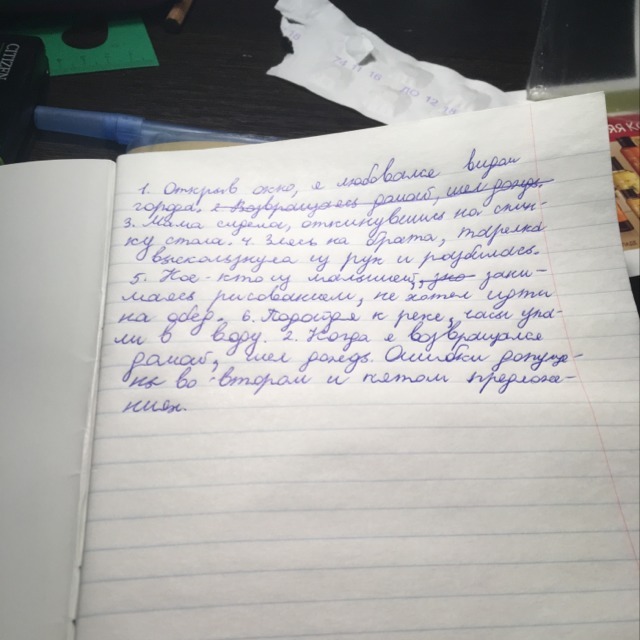 CITIZEN
1. Открыв окно, я любовался видом
города. 2. Возвращаясь домой, шел дождь.
3. Мама сидела, откинувшись на спин-
ку стула. 4. Злясь на брата, тарелка
выскользнула из рук и разбилась.
5. Кое-кто из малышей, зани-
маясь рисованием, не хотел идти
на обед. 6. Подойдя к реке, часы упа-
ли в воду. 2. Когда я возвращался
домой, шел дождь. Ошибки допуще-
ны во втором и пятом предложе-
ниях.